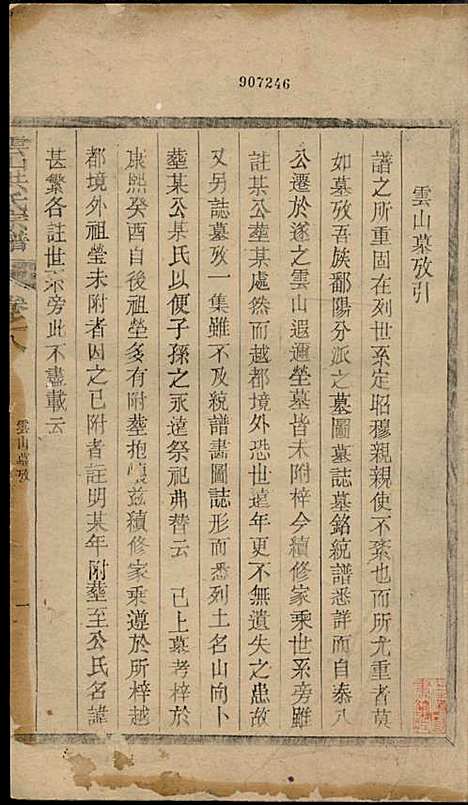 907246
雲山墓攷引
譜之所重固在列世系定昭穆親親使不紊也而所尤重者莫
如墓攷吾族鄱陽分派之墓圖墓誌墓銘統譜悉詳而自泰八
公遷於遂之雲山遐邇塋墓皆未附梓今續修家乘世系旁雖
註某公葬某處然而越都境外恐世遠年更不無遺失之患故
又另誌墓攷一集雖不及統譜畵圖誌形而悉列土名山向卜
葬某公某氏以便子孫之永遠祭祀弗替云 已上墓考梓於
康熙癸酉自後祖塋多有附葬抱歉茲續修家乘遵於所梓越
都境外祖塋未附者因之已附者註明某年附葬至公氏名諱
甚繁各註世系旁此不盡載云
卷之八
雲山墓攷
一